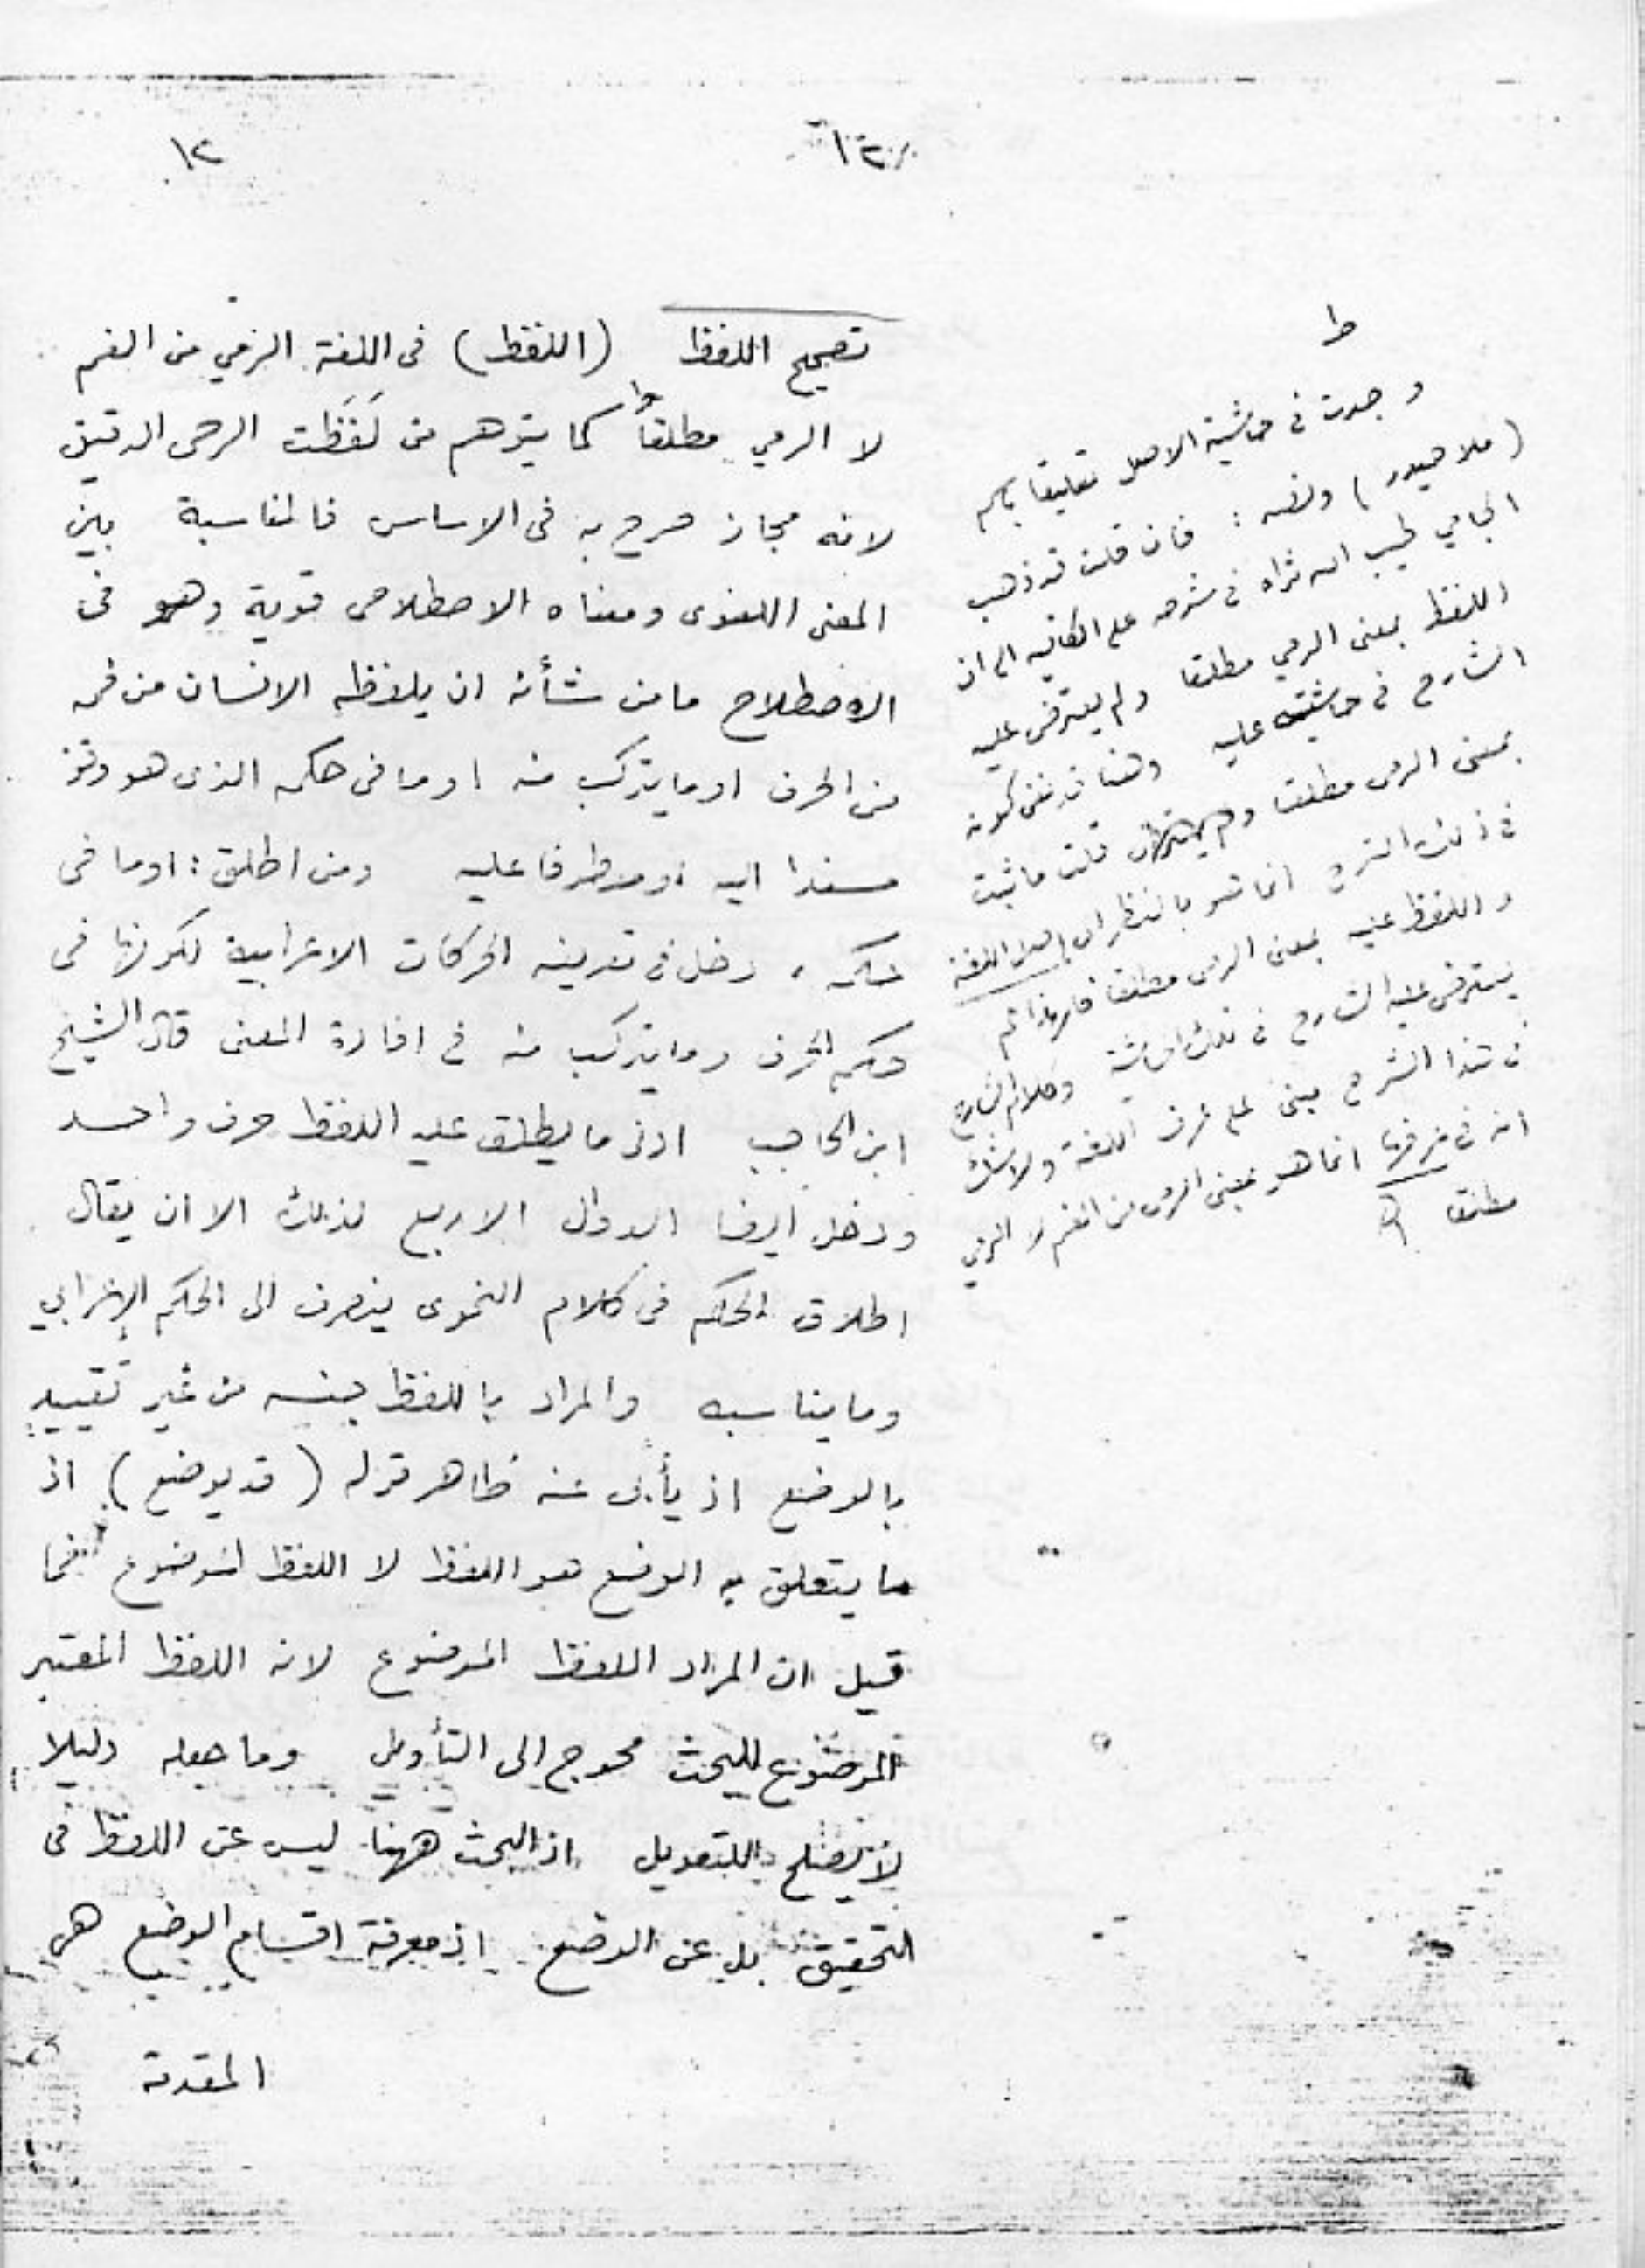 ١٢
١٢
تصحيح اللفظ (اللفظ) فى اللغة الرمي من الفم
لا الرمي مطلقا ط كما يتوهم من لَفَظَت الرحى الدقيق
لانه مجاز صرح به فى الاساس فالمناسبة بين
المعنى اللغوى ومعناه الاصطلاحى قوية وهو فى
الاصطلاح ما من شأنه ان يلفظه الانسان من فمه
من الحرف او ما يتركب منه او ما فى حكمه الذى هو وقوعه
مسندا اليه او معطوفا عليه ومن اطلق: اوما فى
حكمه، دخل فى تعريفه الحركات الاعرابية لكونها فى
حكم الحرف وما يتركب منه فى افادة المعنى قال الشيخ
ابن الحاجب ادنى ما يطلق عليه اللفظ حرف واحد
ودخل ايضا الدوال الاربع لذلك الا ان يقال
اطلاق الحكم فى كلام النحوى ينصرف الى الحكم الإعرابي
وما يناسبه والمراد باللفظ جنسه من غير تقييدٍ
بالوضع اذ يأبى عنه ظاهر قوله (قد يوضع) اذ
ما يتعلق به الوضع هو اللفظ لا اللفظ الموضوع فما
قيل ان المراد اللفظ الموضوع لانه اللفظ المعتبر
الموضوع للبحث محوج الى التأويل وما جعله دليلا
لا يصلح للتعويل اذ البحث ههنا ليس عن اللفظ فى
التحقيق بل عن الوضع اذ معرفة اقسام الوضع هى
المقدمة
ط
وجدت فى حاشية الاصل تعليقا باسم
(ملا حيدر) ونصه: فان قلت قد ذهب
الجامي طيب الله ثراه فى شرحه على الكافيه الى ان
اللفظ بمعنى الرمي مطلقا ولم يعترض عليه
الشارح فى حاشيته عليه وهنا قد نفى كونه
بمعنى الرمى مطلقا قلت ما ثبت
فى ذلك الشرح انما هو بالنظر الى اصل اللغة
و اللفظ عليه بمعنى الرمى مطلقا فلهذا لم
يعترض عليه الشارح فى تلك الحاشية وكلام الشارح
فى هذا الشرح مبنى على عرف اللغة ولا شك
انه فى عرفها انما هو بمعنى الرمى من الفم لا الرمي
مطلقا